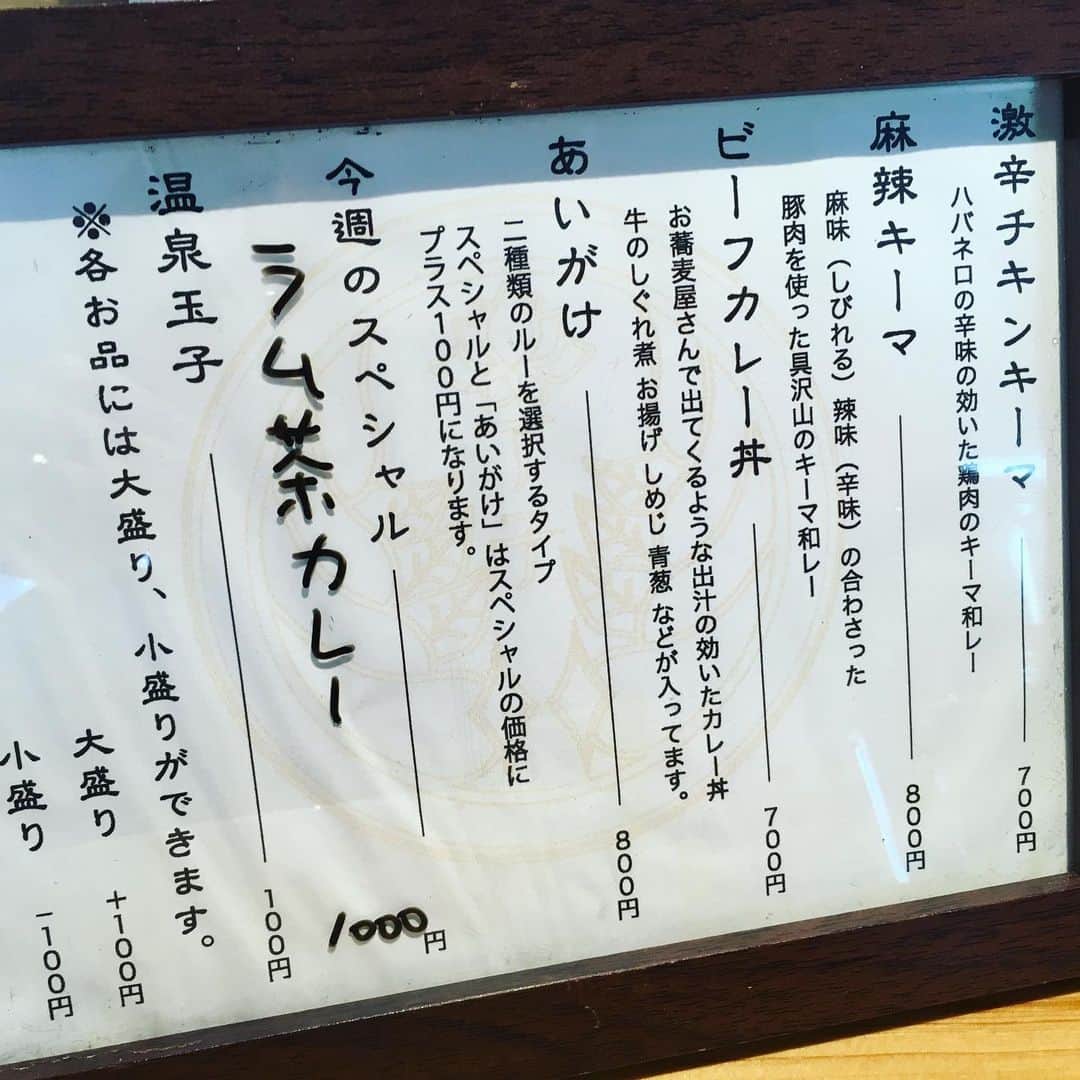 激辛チキンキーマ 700円
ハバネロの辛味の効いた鶏肉のキーマ和レー
麻辣キーマ 800円
麻味(しびれる)辣味(辛味)の合わさった
豚肉を使った具沢山のキーマ和レー
ビーフカレー丼 700円
お蕎麦屋さんで出てくるような出汁の効いたカレー丼
牛のしぐれ煮 お揚げ しめじ 青葱 などが入ってます。
あいがけ 800円
二種類のルーを選択するタイプ
スペシャルと「あいがけ」はスペシャルの価格に
プラス100円になります。
今週のスペシャル 1000円
ラム茶カレー
温泉玉子 100円
※各お品には大盛り、小盛りができます。
大盛り +100円
小盛り -100円